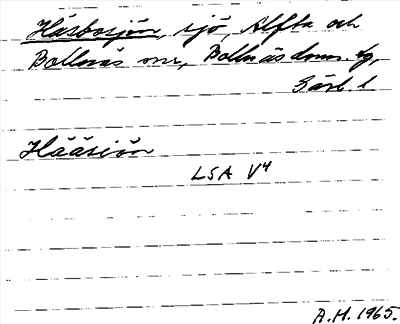 Håsbosjön, sjö, Alfta och
Bollnäs snr, Bollnäs doms. tg,
Gävl. l
Hååsiön
LSA V4
A.H. 1965.